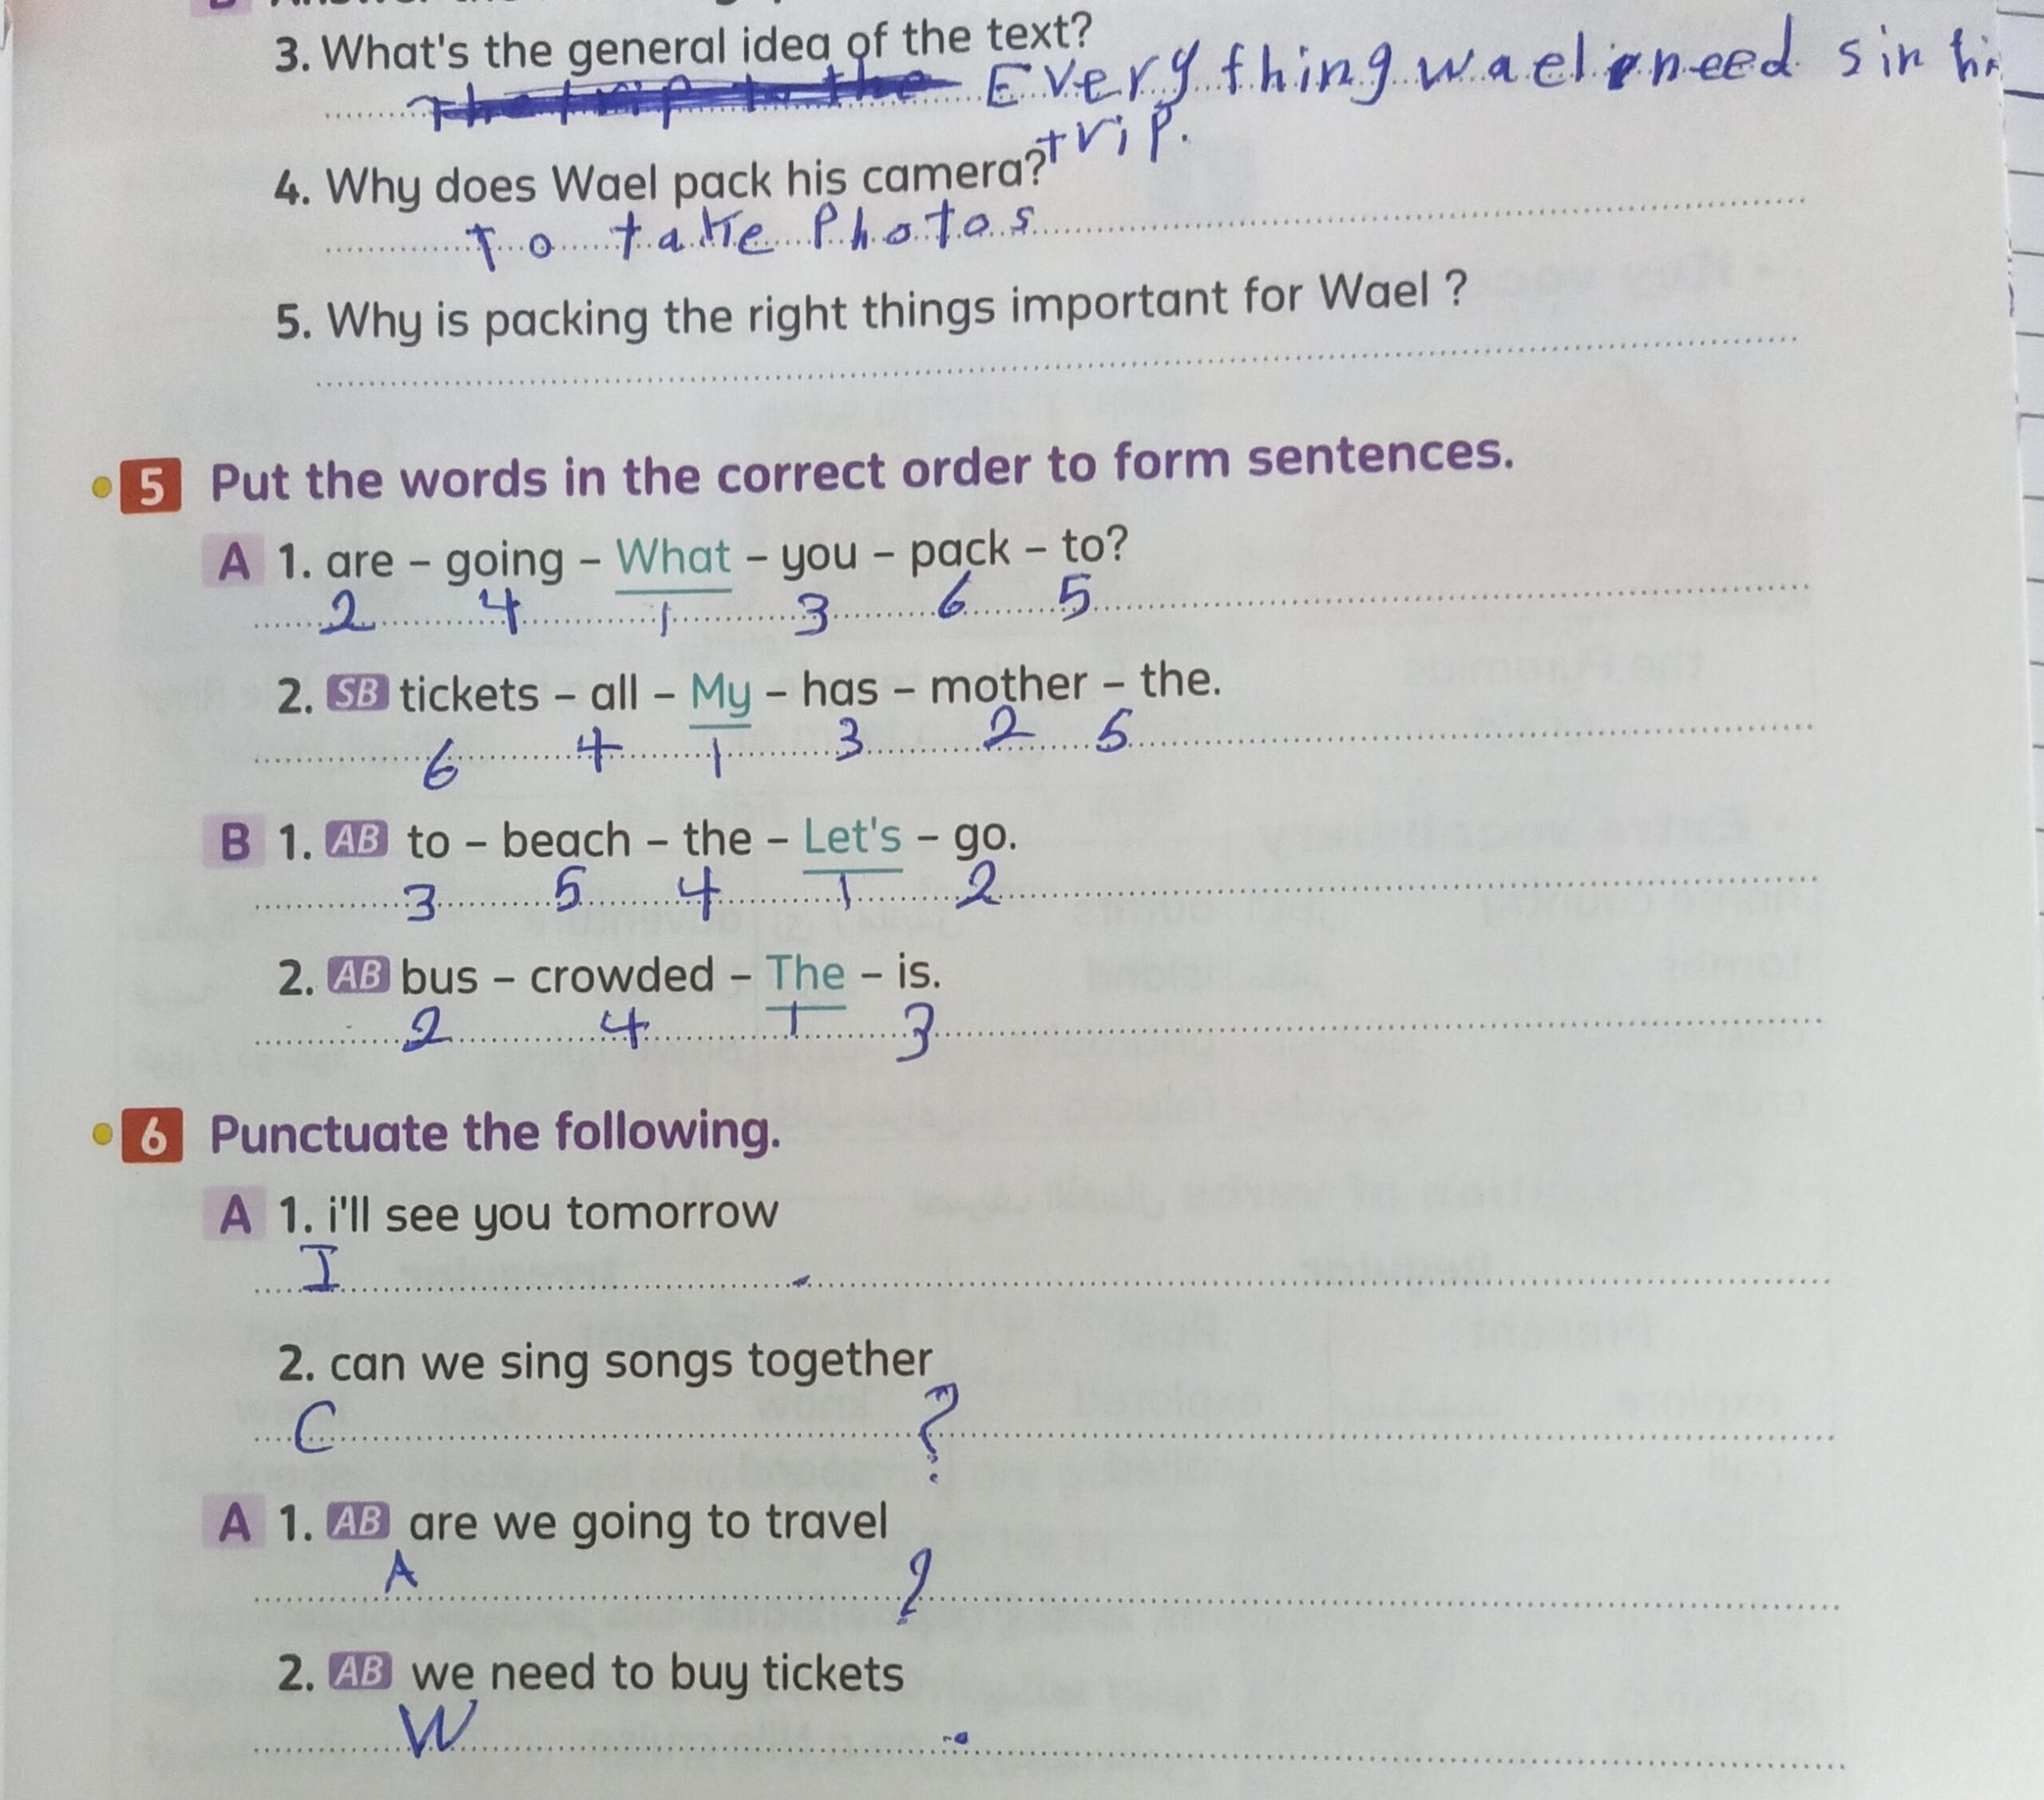 3. What's the general idea of the text?
Every thing wael need s in
trip.
4. Why does Wael pack his camera?
To take Photos
5. Why is packing the right things important for Wael ?
5 Put the words in the correct order to form sentences.
A 1. are – going – What – you – pack – to?
2 4 1 3 6 5
2. SB tickets – all – My – has – mother – the.
6 4 1 3 2 5
B 1. AB to – beach – the – Let's – go.
3 5 4 1 2
2. AB bus – crowded – The – is.
2 4 1 3
6 Punctuate the following.
A 1. i'll see you tomorrow
I .
2. can we sing songs together
C ?
A 1. AB are we going to travel
A ?
2. AB we need to buy tickets
W .